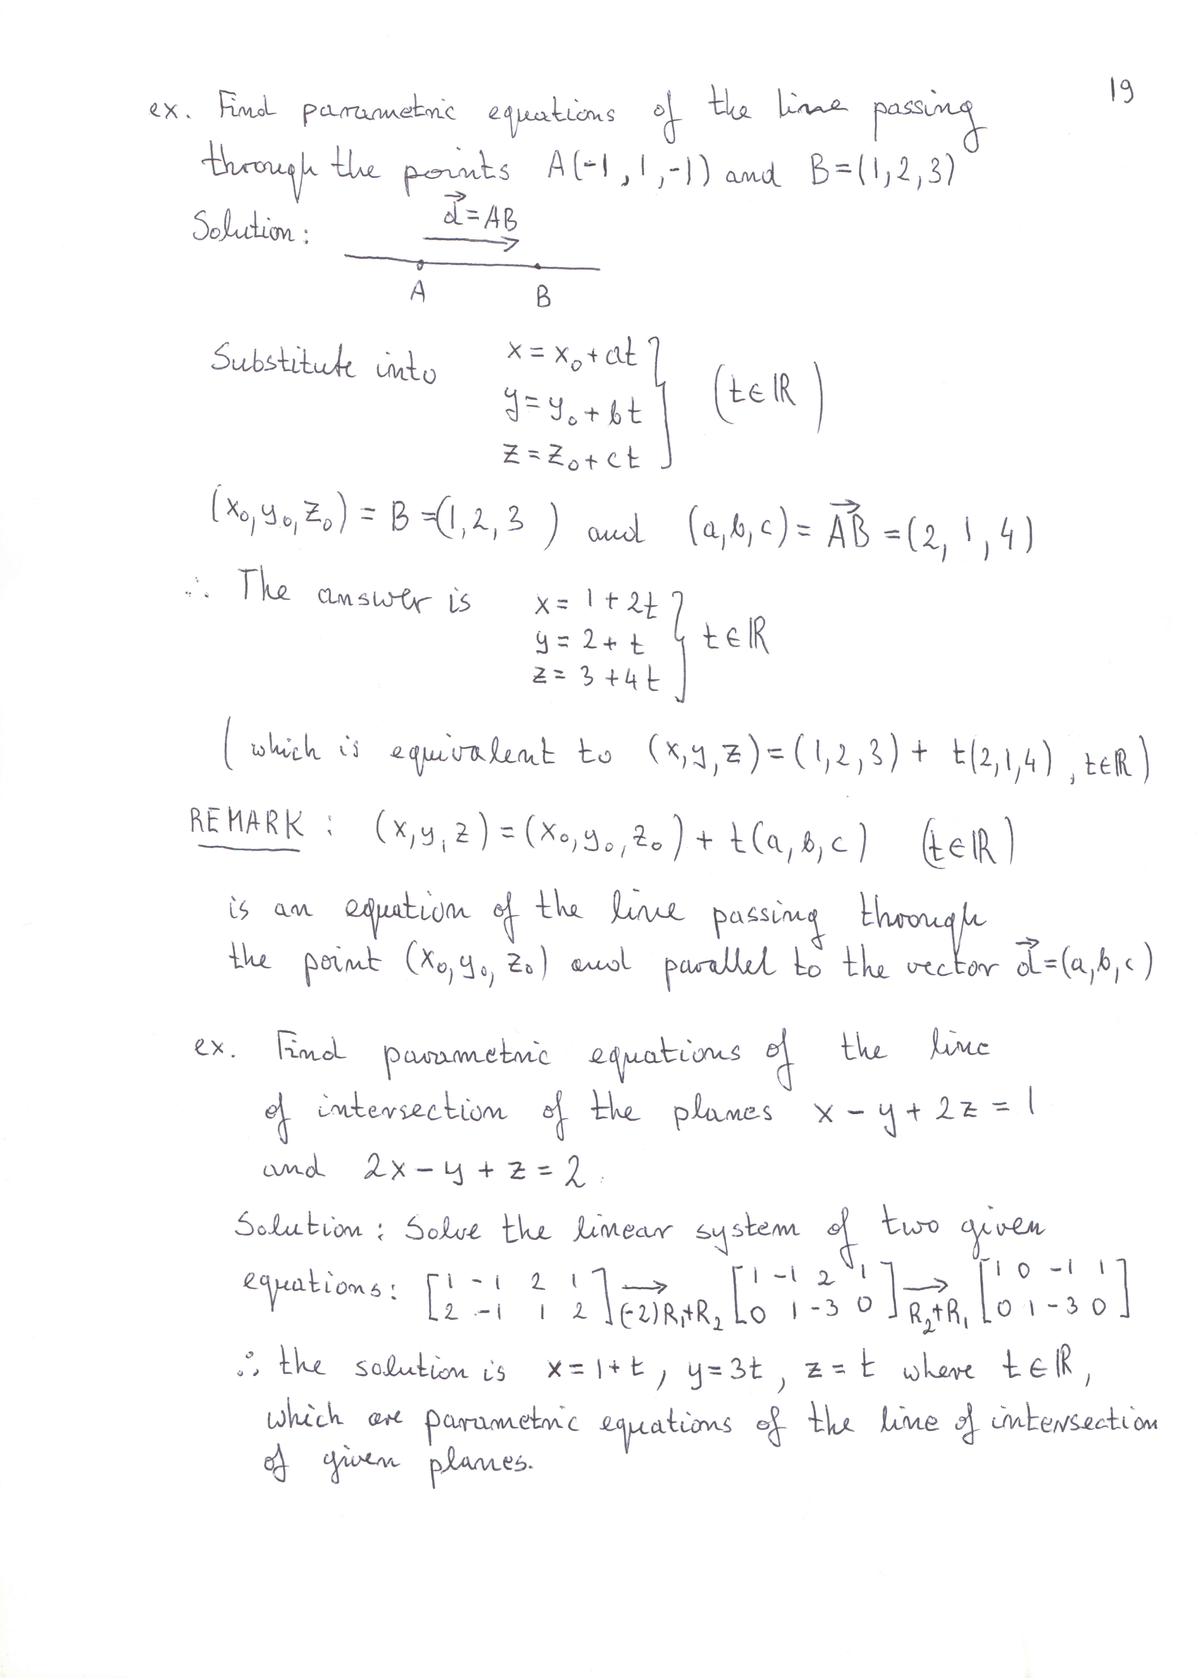 19
ex. Find parametric equations of the line passing
through the points A(-1,1,-1) and B=(1,2,3)
Solution: d⃗=AB
A B
Substitute into x = x₀+at
y = y₀+bt (t∈ℝ)
z = z₀+ct
(x₀,y₀,z₀) = B =(1,2,3) and (a,b,c) = A⃗B =(2,1,4)
∴ The answer is x = 1+2t
y = 2+t } t∈ℝ
z = 3+4t
(which is equivalent to (x,y,z)=(1,2,3) + t(2,1,4), t∈ℝ)
REMARK: (x,y,z) = (x₀,y₀,z₀) + t(a,b,c) (t∈ℝ)
is an equation of the line passing through
the point (x₀,y₀,z₀) and parallel to the vector d⃗=(a,b,c)
ex. Find parametric equations of the line
of intersection of the planes x-y+2z=1
and 2x-y+z=2.
Solution: Solve the linear system of two given
equations: [1 -1 2 1; 2 -1 1 2] → (-2)R₁+R₂ [1 -1 2 1; 0 1 -3 0] → R₂+R₁ [1 0 -1 1; 0 1 -3 0]
∴ the solution is x=1+t, y=3t, z=t where t∈ℝ,
which are parametric equations of the line of intersection
of given planes.